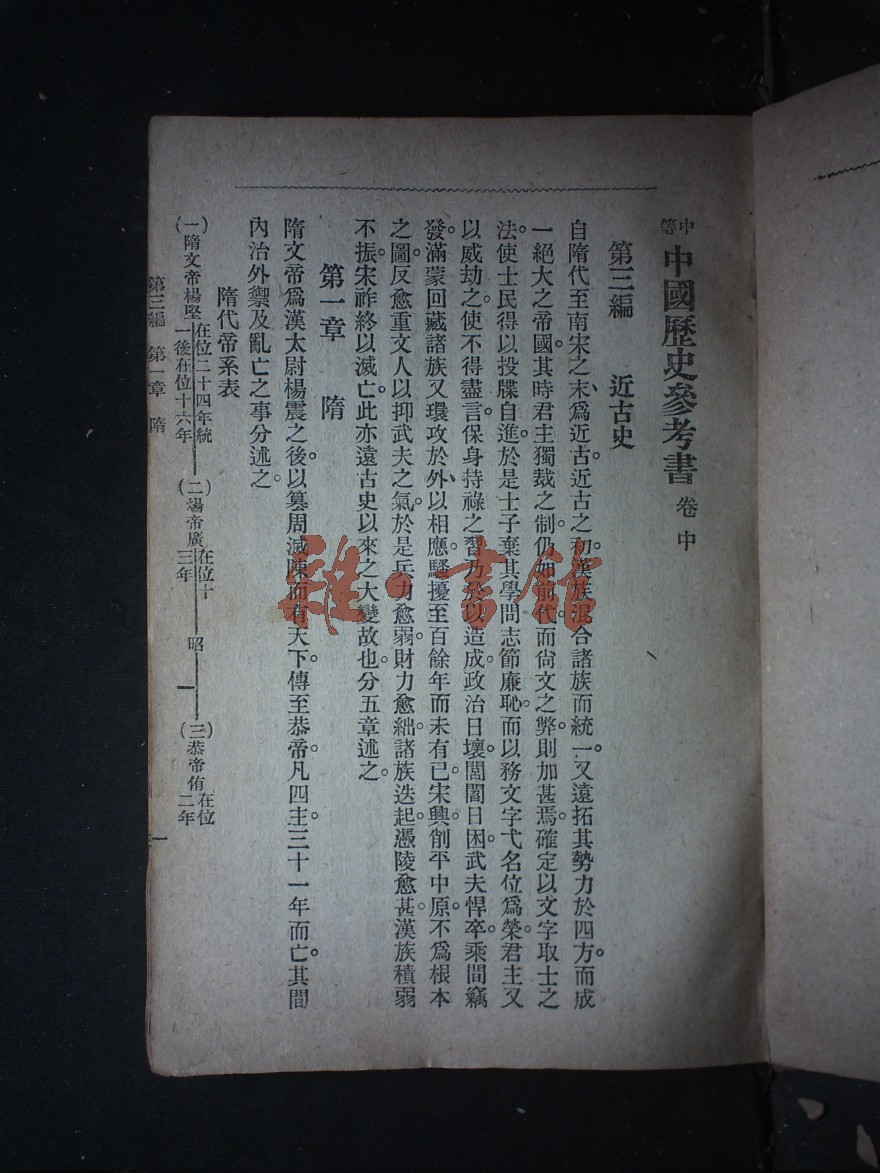 中等 中國歷史參考書 卷中
第三編 近古史
自隋代至南宋之末、爲近古。近古之初。漢族混合諸族而統一。又遠拓其勢力於四方。而成
一絕大之帝國。其時君主獨裁之制。仍如前代。而尙文之弊。則加甚焉。確定以文字取士之
法。使士民得以投牒自進。於是士子棄其學問志節廉恥。而以務文字弋名位爲榮。君主又
以威劫之。使不得盡言。保身持祿之習。乃於以造成。政治日壞。閭閻日困。武夫悍卒。乘間竊
發。滿蒙回藏諸族。又環攻於外、以相應。騷擾至百餘年而未有已。宋興。削平中原。不爲根本
之圖。反愈重文人以抑武夫之氣。於是兵力愈弱。財力愈絀。諸族迭起。憑陵愈甚。漢族積弱
不振。宋祚終以滅亡。此亦遠古史以來之大變故也。分五章述之。
第一章 隋
隋文帝爲漢太尉楊震之後。以篡周滅陳而有天下。傳至恭帝。凡四主。三十一年而亡。其間
內治外禦及亂亡之事分述之。
隋代帝系表
(一)隋文帝楊堅 在位二十四年統一後在位十六年 (二)煬帝廣 在位十三年 昭 (三)恭帝侑 在位二年
第三編 第一章 隋 一
雜·書館